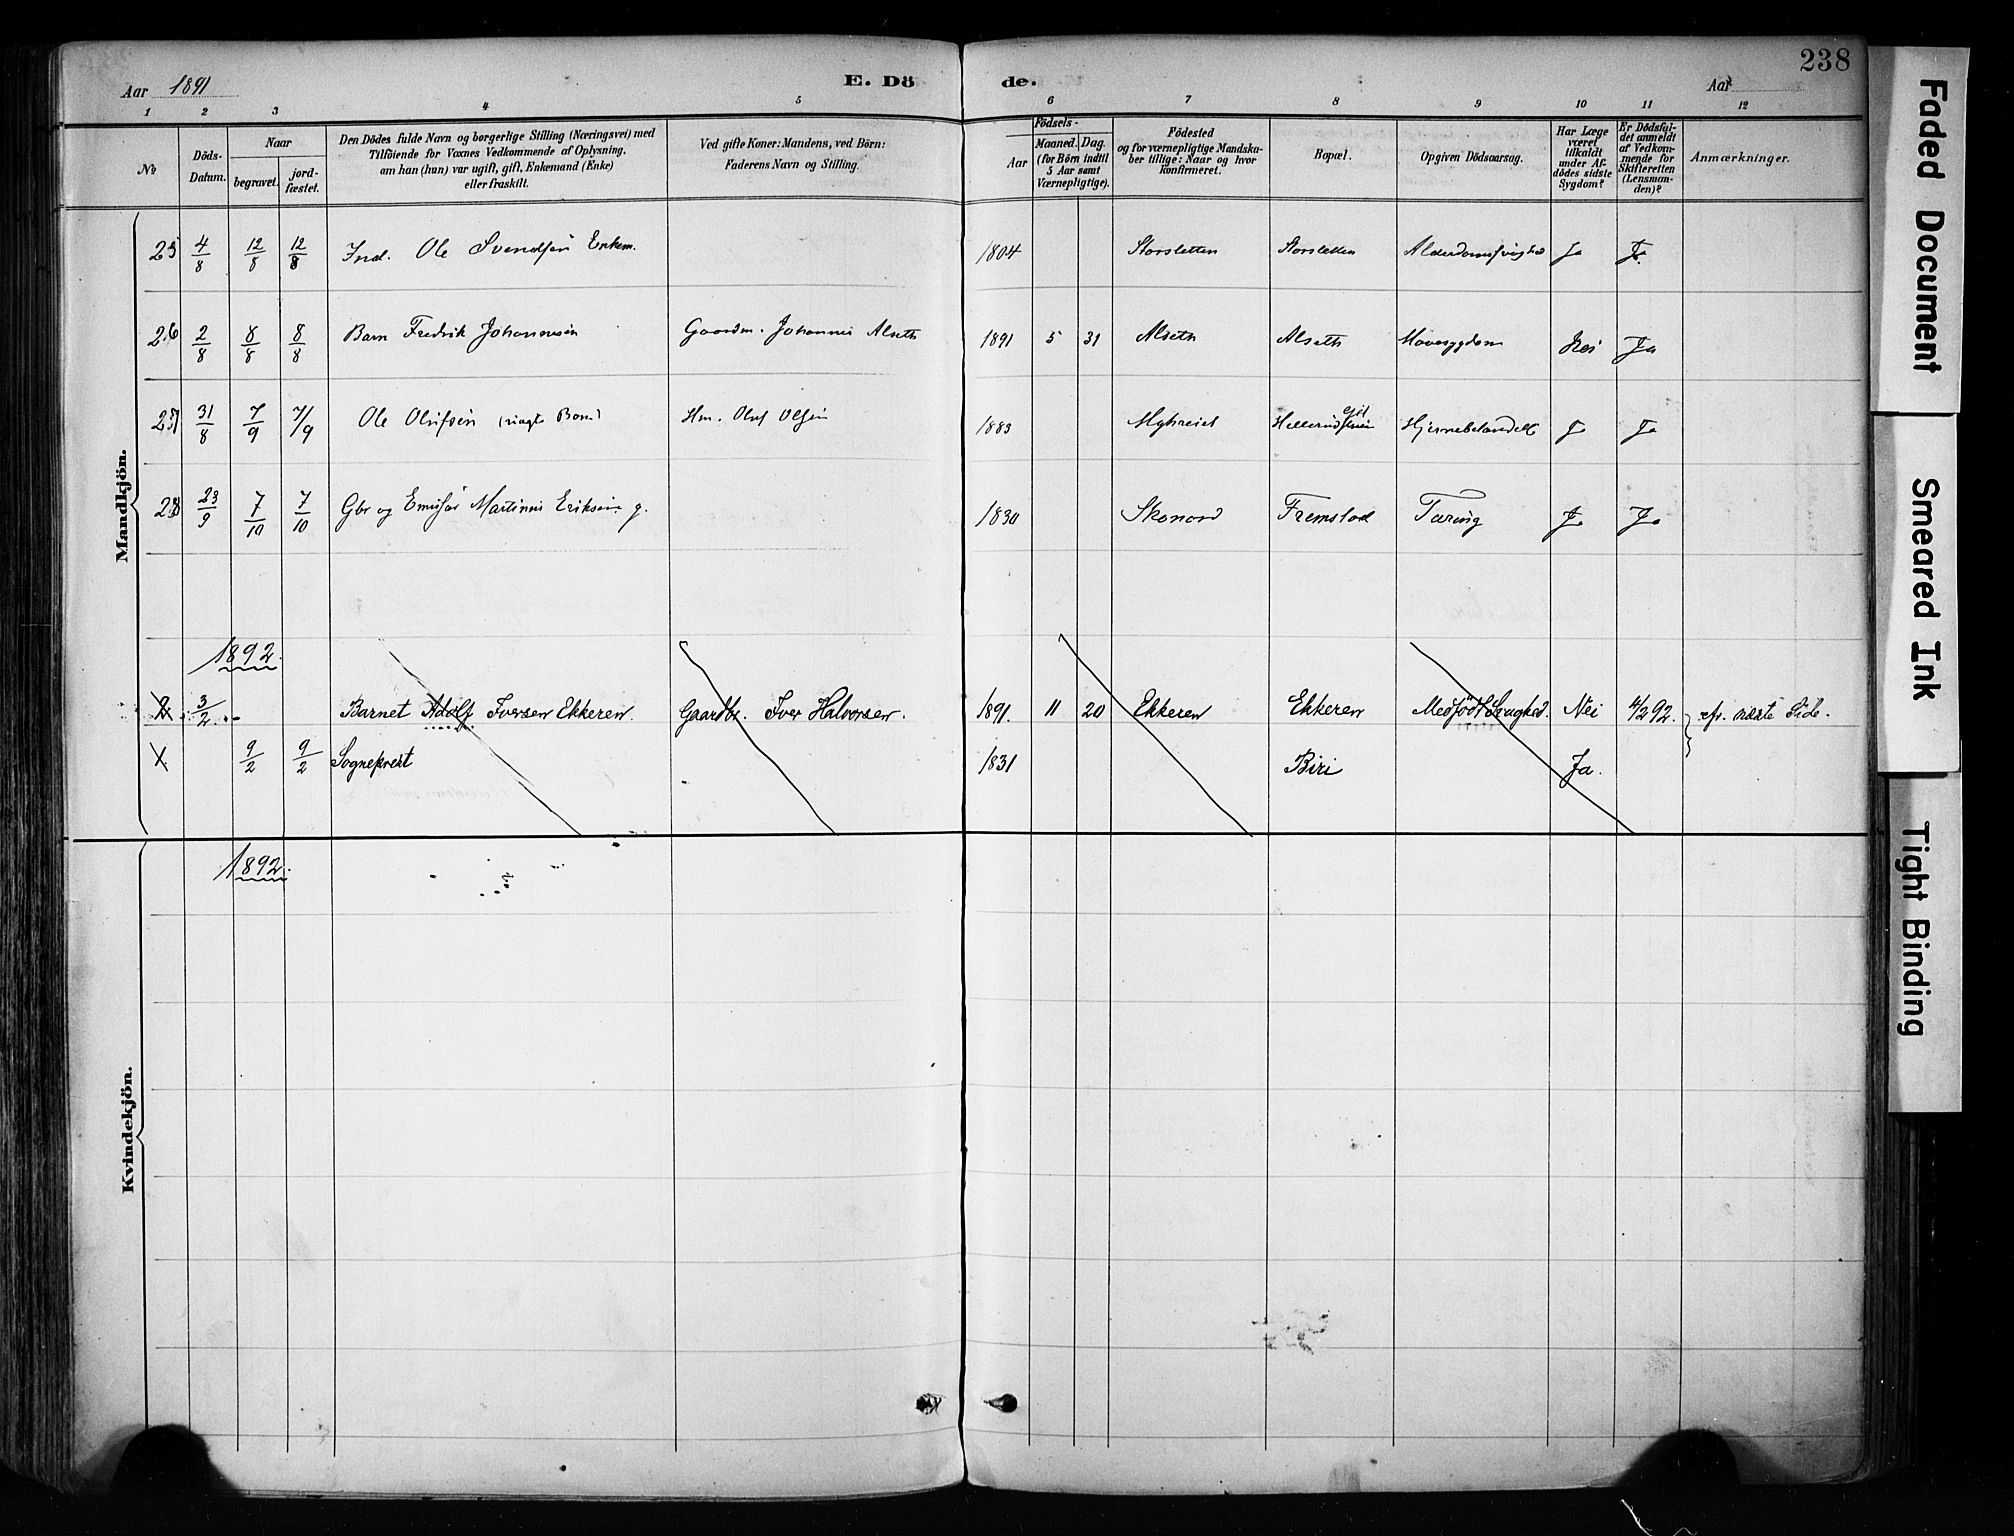 238
Aar 1891 E. Dö de. Aar
1 2 3 4 5 6 7 8 9 10 11 12
№
Döds-Datum.
Naar
begravet.
jord-fæstet.
Den Dödes fulde Navn og borgerlige Stilling (Næringsvei) med
Tilföiende for Voxnes Vedkommende af Oplysning.
om han (hun) var ugift, gift, Enkemand (Enke)
eller fraskilt.
Ved gifte Koner: Mandens, ved Börn:
Faderens Navn og Stilling.
Födsels-
Aar
Maaned. Dag.
(for Börn indtil
5 Aar samt
Værnepligtige).
Födested
og for værnepligtige Mandska-
ber tillige: Naar og hvor
konfirmeret.
Bopæl.
Opgiven Dödsaarsag.
Har Læge
været
tilkaldt
under Af-
dödes sidste
Sygdom?
Er Dödsfal-
det anmeldt
af Vedkom-
mende for
Skifteretten
(Lensman-
den)?
Anmærkninger.
Mandkjön.
25 4/8 12/8 12/8 Ind. Ole Svendsen Enkem. 1804 Storsletten Storsletten Ja Ja
26 2/8 8/8 8/8 Barn Fredrik Johannesen Gaardm. Johannes Alseth 1891 5 31 Alseth Alseth Mavesygdom Nei Ja
27 31/8 7/9 7/9 Ole Olufsen Hm. Oluf Olsen 1883 Ja Ja
28 23/9 7/10 7/10 Gbr og Martinus Eriksen g. 1830 Skonord Fremstad Tæring Ja Ja
1892.
3/2 Barnet Adolf Iversen Ekkeren. Gaardbr. Iver Halvorsen. 1891. 11 20 Ekkeren Ekkeren Medfödt Svaghed. Nei 4/2 92. cfr. næste Side.
9/2 9/2 Sogneprest 1831 Biri Ja.
Kvindekjön.
1892.
Faded Document
Smeared Ink
Tight Binding